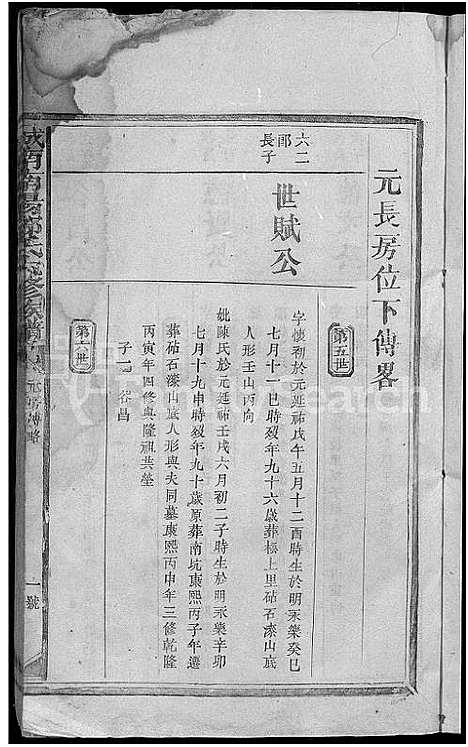 元長房位下傳畧
第五世
六二郎長子
世賦公
字懷初於元延祐戊午五月十二酉時生於明永樂癸巳
七月十一巳時歿年九十六歲葬極上里砧石漆山底
人形壬山丙向
妣陳氏於元延祐壬戌六月初二子時生於明永樂辛卯
七月十九申時歿年九十歲原葬南坑康熙丙子年遷
葬砧石漆山底人形與夫同墓康熙丙申年三修乾隆
丙寅年四修與隆祖共塋
子一 谷昌
第六世
氏六修族譜
元房傳略
一號